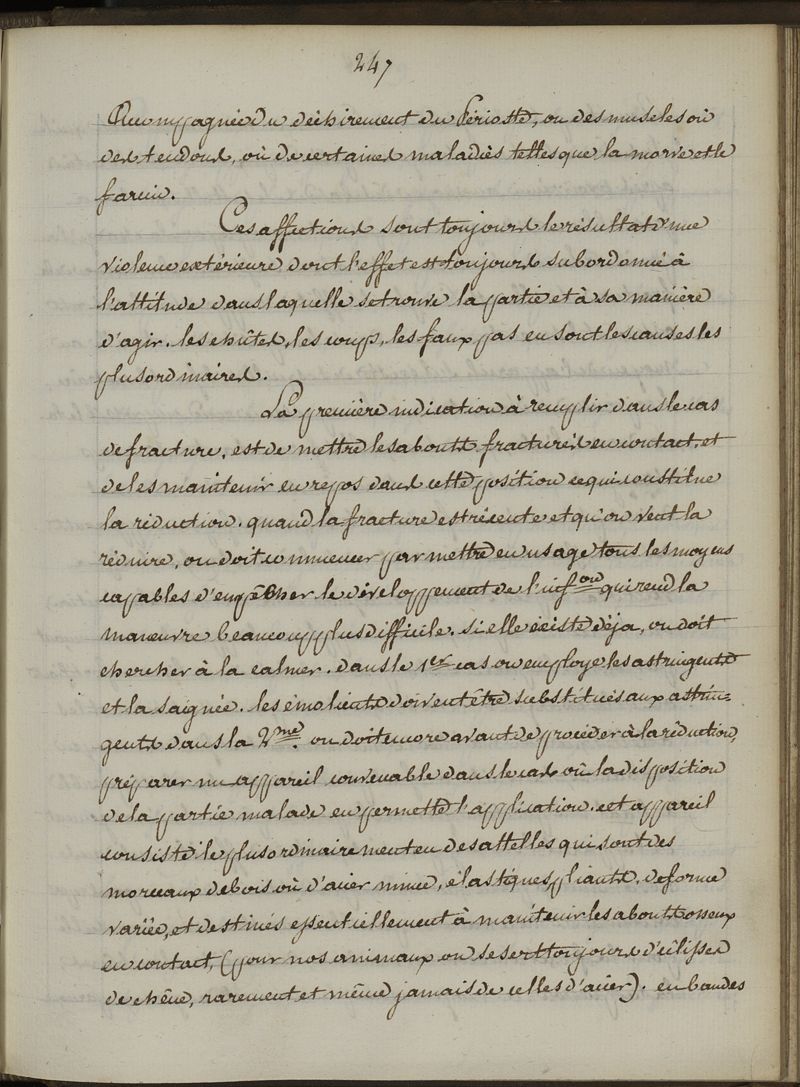 247
Accompagnée du déchirement du Périoste, ou des muscles où
des tendons, où de certaines maladiès telles que la morve et le
farcin.
Ces affections sont toujours le résultat d'une
violence extérieure dont l'effet est toujours subordonné à
l'attitude dans laquelle se trouve la partie et à sa manière
d'agir. les chûtes, les coups, les faux pas en sont les causes les
plus ordinaires.
La première indication à remplir dans le cas
de fracture, est de mettre les abouts fracturés en contact, et
de les maintenir en repos dans cette position ce qui constitue
la réduction. quand la fracture est récente et qu'on veut la
réduire, on doit commencer par mettre en usage tous les moyens
capables d'empêcher le développement de l'inf.on qui rend la
manœuvre beaucoup plus difficile. si elle existe déja, on doit
chercher à la calmer. dans le 1er cas on employe les astringents
et la saignée. les émolients doivent être substitués aux astrin=
gents dans la 2me. on doit encore avant de procéder à la réduction,
préparer un appareil convenable dans le cas où la disposition
de la partie malade en permette l'application. cet appareil
consiste le plus ordinairement en des attelles qui sont des
morceaux de bois où d'acier mince, élastiques, pliants, de forme
variée, et destinés essentiellement à maintenir les abouts osseux
en contact, (pour nos animaux on se sert toujours d'éclisses
de chêne, rarement et même jamais de celles d'acier). en bandes